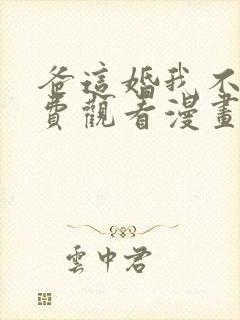 爸這婚我不
費觀看漫畫
雲中君